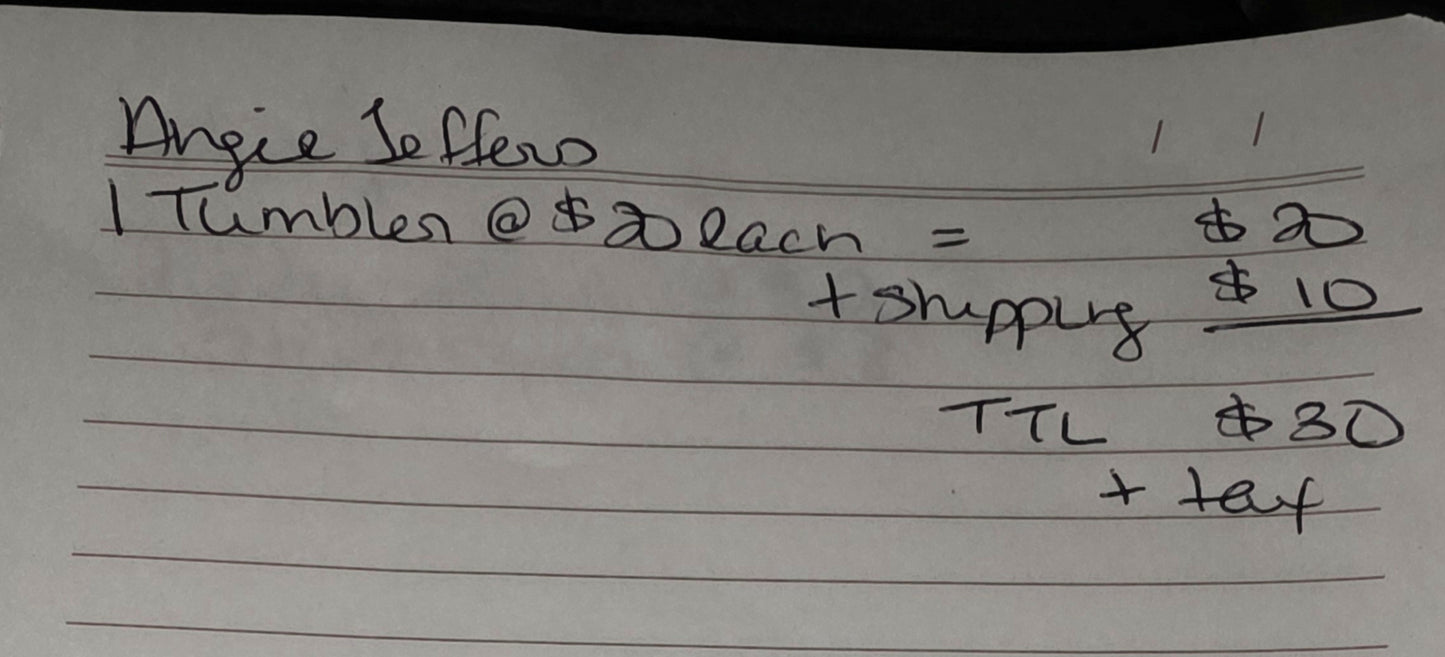 Angie Jeffers
1 Tumbler @ $20 each = $20
+ shipping $10
TTL $30
+ tax